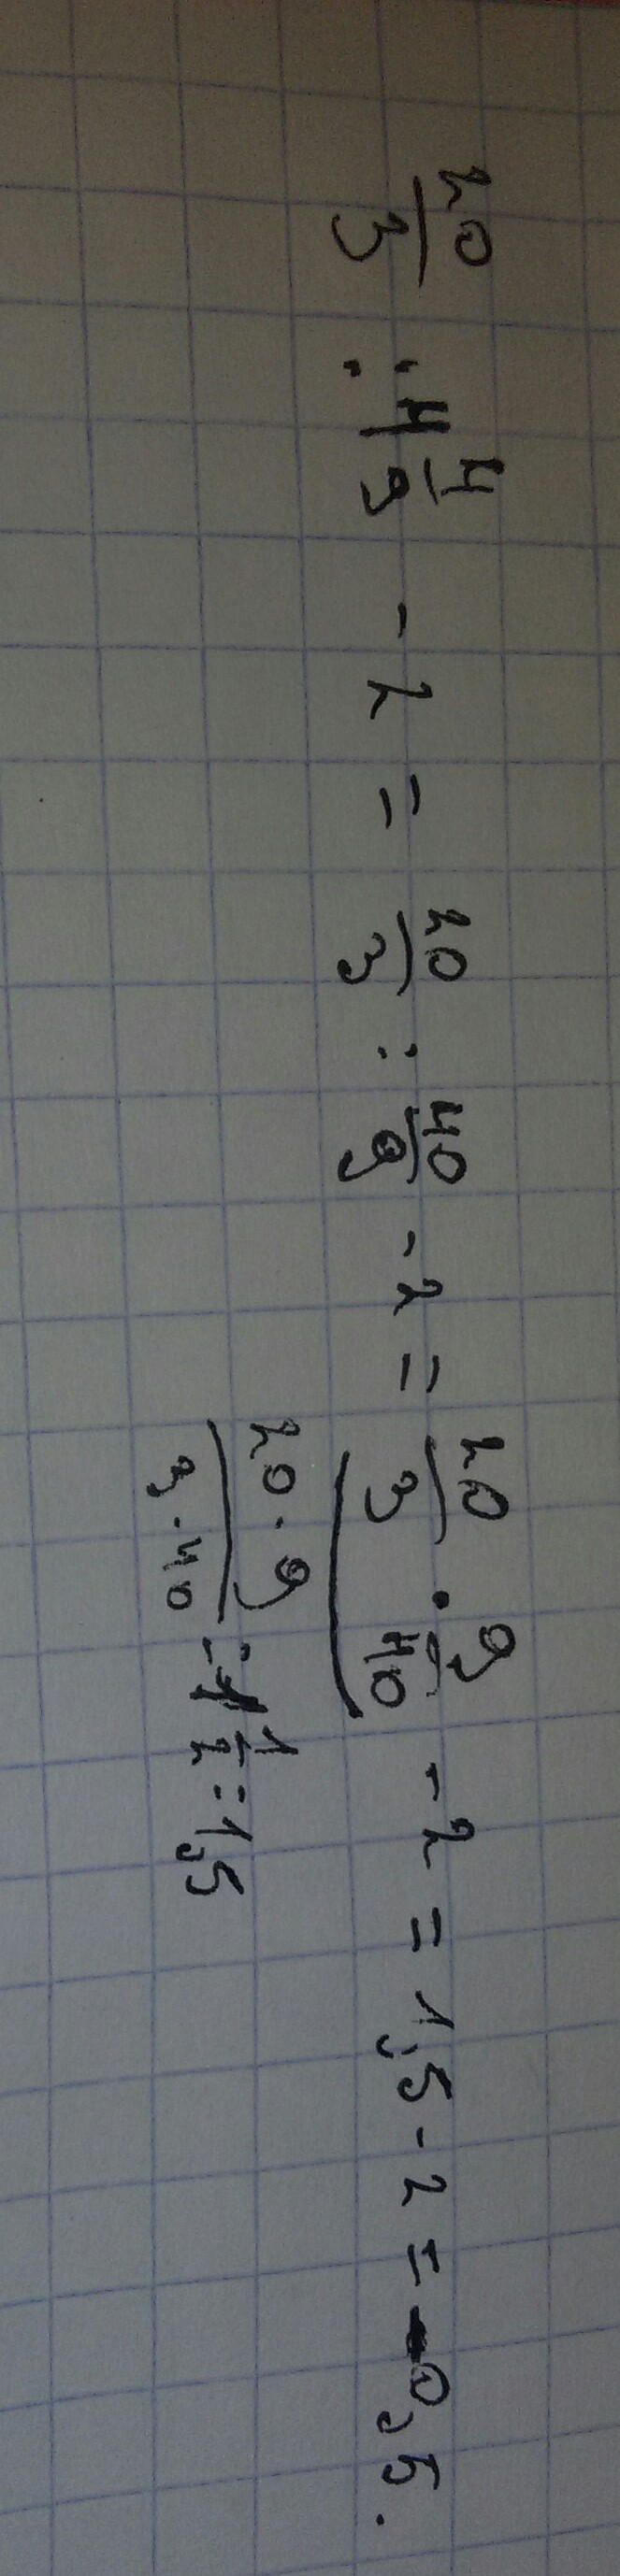 20/3 : 4 4/9 - 2 = 20/3 : 40/9 - 2 = 20/3 · 9/40 - 2 = 1,5 - 2 = -0,5.
20·9/3·40 = 1 1/2 = 1,5